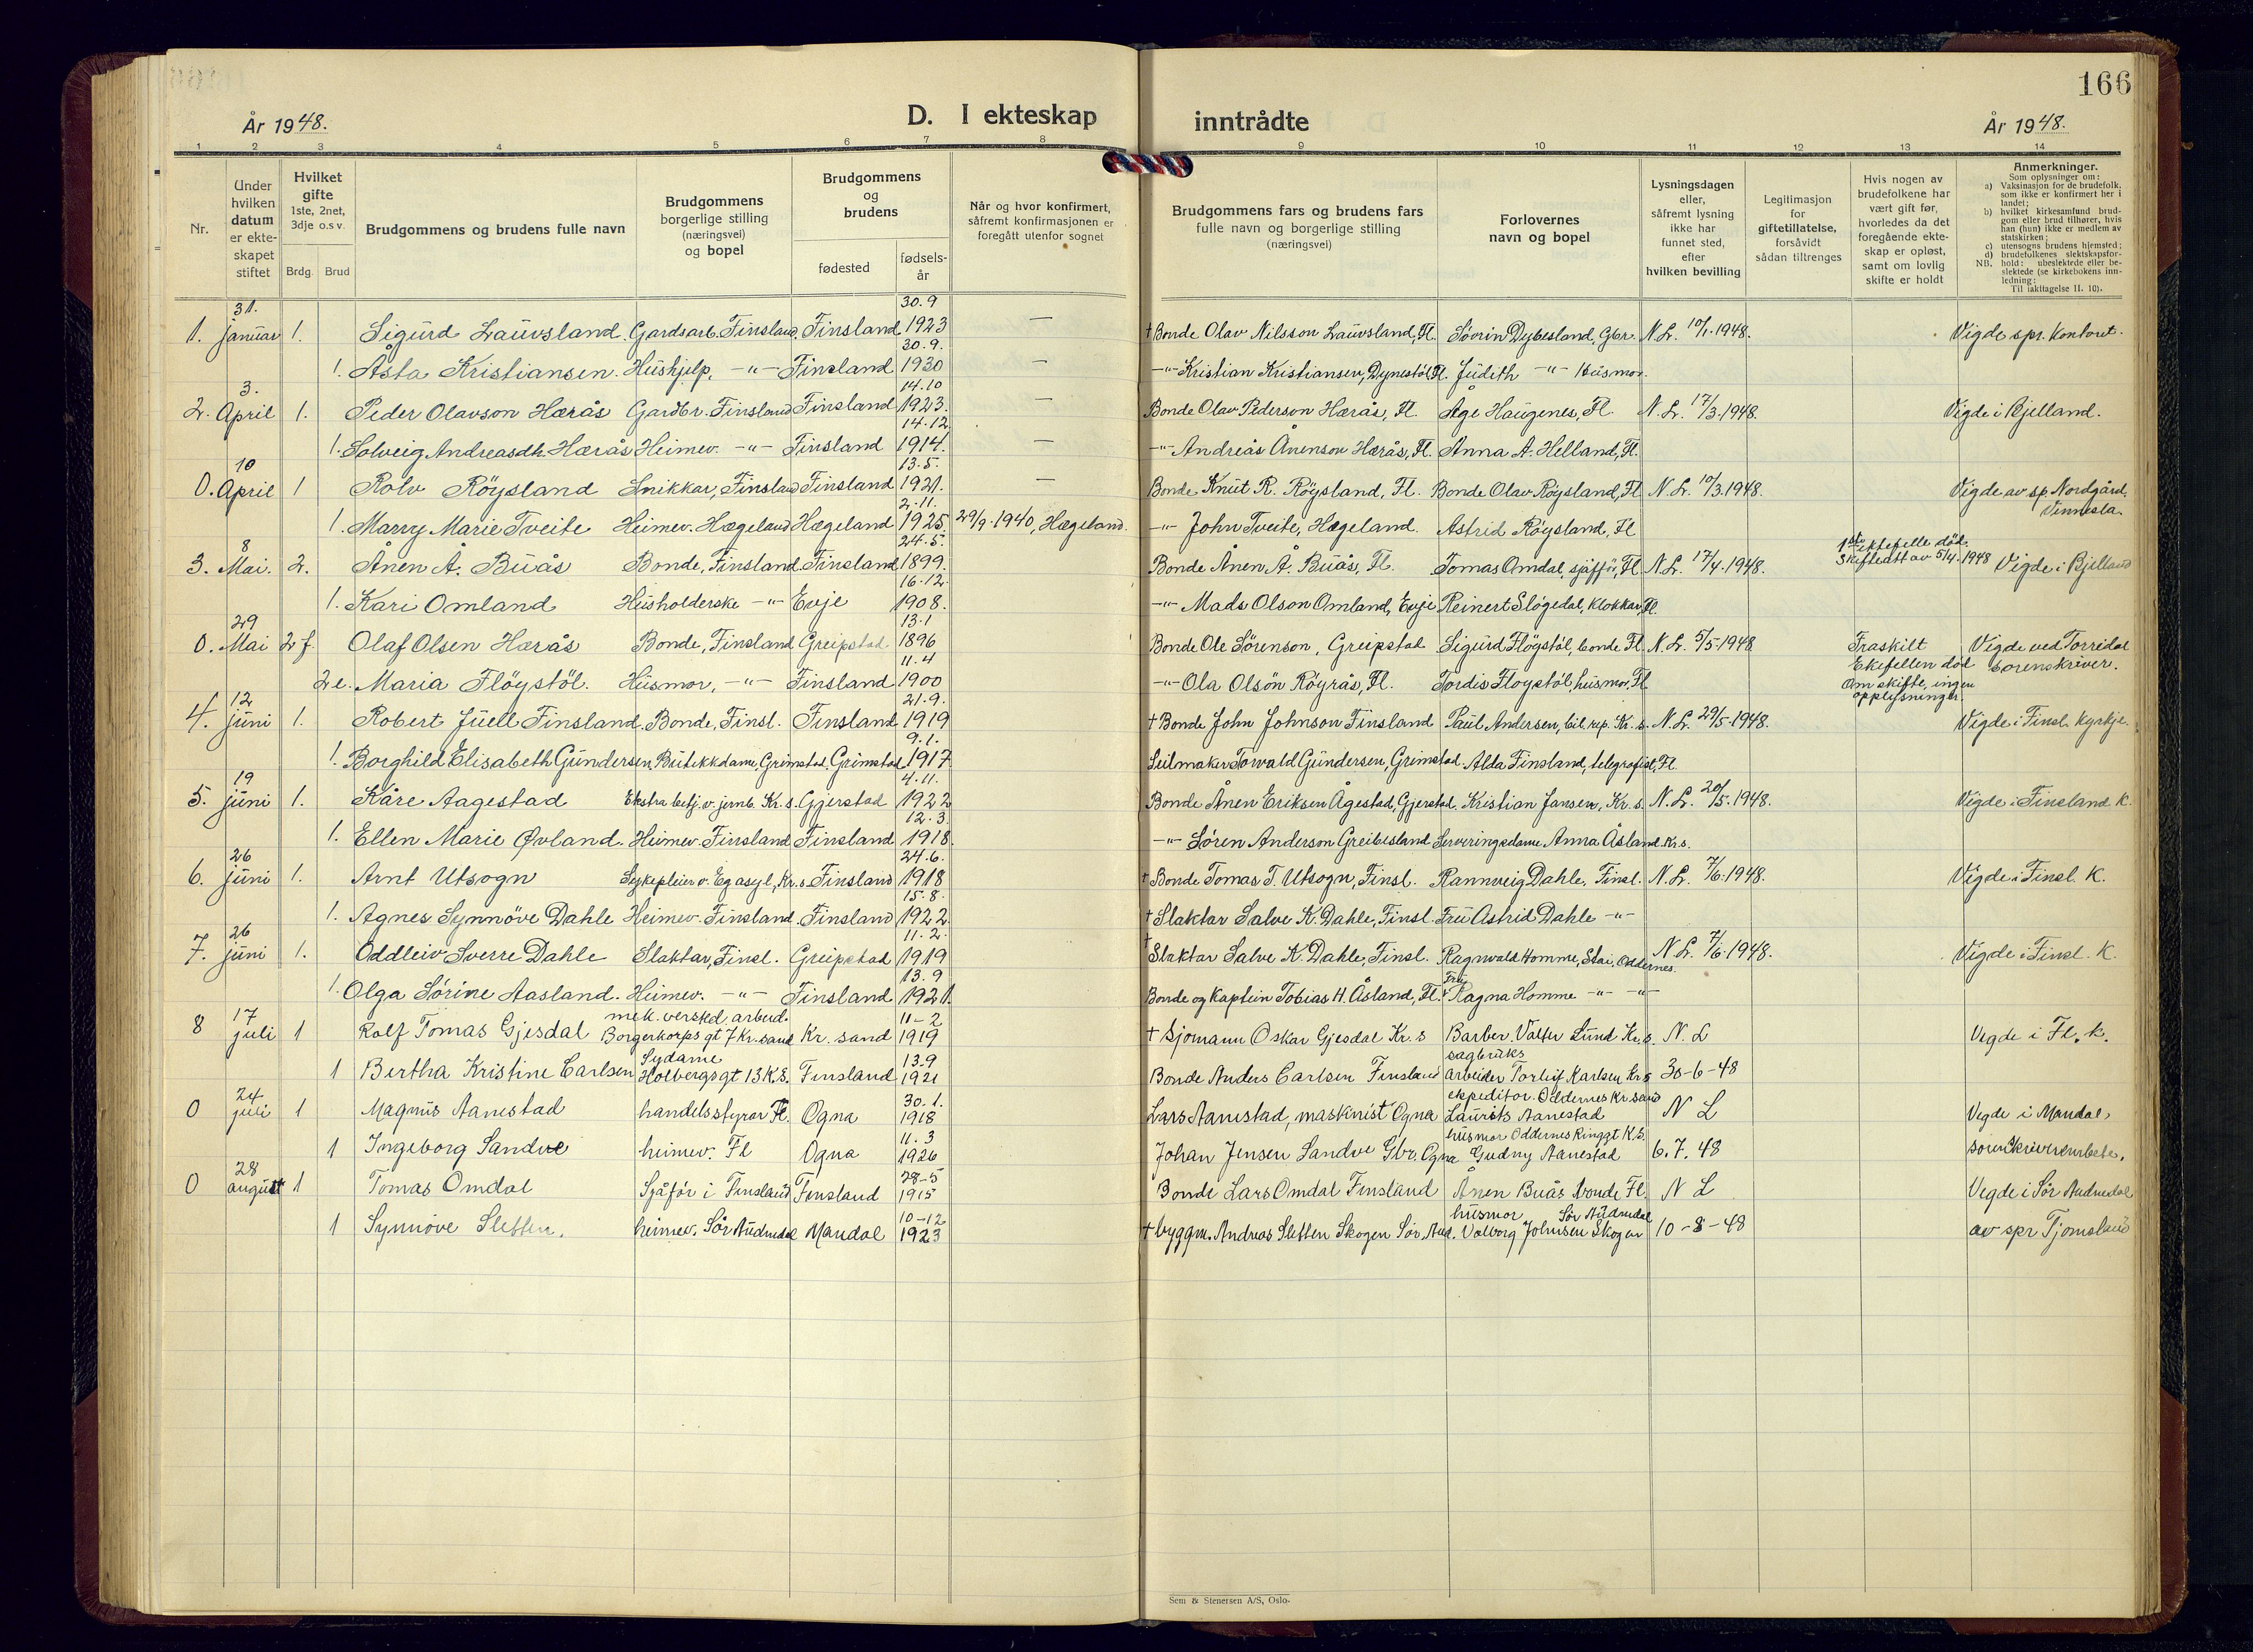 166
År 1948.
D. I ekteskap inntrådte
År 1948.
1 2 3 4 5 6 7 8 9 10 11 12 13 14
Nr.
Under hvilken datum er ekte-skapet stiftet
Hvilket gifte 1ste, 2net, 3dje o.s v.
Brdg. Brud
Brudgommens og brudens fulle navn
Brudgommens borgerlige stilling (næringsvei) og bopel
Brudgommens og brudens
fødested
fødsels-år
Når og hvor konfirmert, såfremt konfirmasjonen er foregått utenfor sognet
Brudgommens fars og brudens fars fulle navn og borgerlige stilling (næringsvei)
Forlovernes navn og bopel
Lysningsdagen eller, såfremt lysning ikke har funnet sted, efter hvilken bevilling
Legitimasjon for giftetillatelse, forsåvidt sådan tiltrenges
Hvis nogen av brudefolkene har vært gift før, hvorledes da det foregående ekte-skap er opløst, samt om lovlig skifte er holdt
Anmerkninger.
Som oplysninger om:
a) Vaksinasjon for de brudefolk, som ikke er konfirmert her i landet;
b) hvilket kirkesamfund brud-gom eller brud tilhører, hvis han (hun) ikke er medlem av statskirken;
c) utensogns brudens hjemsted;
d) brudefolkenes slektskapsfor-hold: ubeslektede eller be-slektede (se kirkebokens inn-ledning:
NB.
Til iakttagelse II. 10).
1. 31. januar 1. Sigurd Lauvsland. Gardsarb. Finsland. Finsland 30.9 1923 — † Bonde Olav Nilsson Lauvsland, Fl. Sövrin Dybesland, Gbr. N.L. 10/1. 1948. Vigde spr. Kontoret.
1. Åsta Kristiansen. Hushjelp, -"- Finsland 30.9. 1920 — -"- Kristian Kristiansen, Dynestöl Fl. Judith -"- Husmor.
2. 3. April 1. Peder Olavson Hærås Gardbr. Finsland Finsland 14.10 1923. — Bonde Olav Pederson Hærås, Fl. Åge Haugenes, Fl. N.L. 17/3. 1948. Vigde i Bjelland.
1. Solveig Andreasdh. Hærås Heimev. -"- Finsland 14.12 1914. — -"- Andreas Ånenson Hærås, Fl. Anna A. Helland, Fl.
0. 10 April 1 Rolv Röysland Snikkar, Finsland Finsland 13.5. 1921. — Bonde Knut R. Röysland, Fl. Bonde Olav Röysland, Fl N.L. 10/3. 1948. Vigde av sp. Nordgård, Vennesla.
1. Marry Marie Tveite Heimev. Hægeland Hægeland 2.11. 1925. 29/9. 1940, Hægeland. -"- John Tveite, Hægeland. Astrid Röysland, Fl
3. 8 Mai. 2. Ånen Å. Buås Bonde, Finsland Finsland 24.5. 1899. Bonde Ånen Å. Buås, Fl. Tomas Omdal, sjåfför, Fl N.L. 17/4. 1948. 1ste ektefelle död. Skifteatt av 5/4. 1948 Vigde i Bjelland
1. Kari Omland Husholderske -"- Evje 16.12. 1908. -"- Mads Olson Omland, Evje Reinert Slögedal, Klokkar, Fl.
0. 29 Mai 2 f. Olaf Olsen Hærås Bonde, Finsland Greipstad 13.1 1896 Bonde Ole Sörenson, Greipstad Sigurd Flöystöl, bonde Fl N.L. 5/5. 1948 Fraskilt Vigde ved Torridal sorenskriver.
2 e. Maria Flöystöl. Husmor, -"- Finsland 11.4 1900 -"- Ola Olsön Röyrås, Fl. Tordis Flöystöl, husmor, Fl Ekefellen död Om skifte, ingen opplysninger
4. 12 juni 1. Robert Juell Finsland. Bonde, Finsl. Finsland 21.9. 1919 † Bonde John Johnson Finsland Paul Andersen, bil. rep. Kr. s. N.L. 29/5. 1948. Vigde i Finsl. Kyrkje.
1. Borghild Elisabeth Gundersen, Butikkdame, Grimstad. Grimstad 9.1. 1917 Seilmaker Torvald Gundersen, Grimstad. Alda Finsland, telegrafist, Fl.
5. 19 juni 1. Kåre Aagestad Ekstra betj. v. jernb. Kr. s. Gjerstad 4.11. 1922 Bonde Ånen Eriksen Ågestad, Gjerstad. Kristian Jansen, Kr. s. N.L. 20/5. 1948. Vigde i Finsland K.
1. Ellen Marie Øvland. Heimev. Finsland Finsland 12.3. 1918. -"- Søren Anderson Greibesland Serveringsdame Anna Åsland. Kr.s.
6. 26 juni 1. Arnt Utsogn Sykepleier v. Eg asyl, Kr. s. Finsland 24.6. 1918 † Bonde Tomas T. Utsogn, Finsl. Rannveig Dahle, Finsl. N.L. 7/6. 1948. Vigde i Finsl. K.
1. Agnes Synnöve Dahle Heimev. Finsland. Finsland 15.8. 1922. † Slaktar Salve K. Dahle, Finsl. Fru Astrid Dahle -"-
7. 26 juni 1. Oddleiv Sverre Dahle Slaktar, Finsl. Greipstad 11.2. 1919 † Slaktar Salve K. Dahle, Finsl. Ragnvald Homme, Stai, Oddernes. N.L. 7/6. 1948. Vigde i Finsl. K.
1. Olga Sörine Aasland. Heimev. -"- Finsland 13.9 1921. Bonde og Kaptein Tobias H. Åsland, Fl. Fru Ragna Homme -"- -"-
8 17 juli 1 Rolf Tomas Gjesdal mek. versted. arbeid. Borgerkorps gt 7 Kr. sand Kr. sand 11-2 1919 † Sjömann Oskar Gjesdal Kr. s Barber Valter Lund Kr. s. N. L Vegde i Fl. k.
1 Bertha Kristine Carlsen Sydame Holbergsgt 13 K.S. Finsland 13.9 1921 Bonde Anders Carlsen Finsland sagbruks arbeider Torleif Karlsen Kr s 30-6-48
0 24 juli 1 Magnus Aanestad handelsstyrar Fl. Ogna 30.1. 1918 Lars Aanestad, maskinist Ogna ekspeditor. Oddernes Kr. sand Laurits Aanestad N L Vegde i Mandal,
1 Ingeborg Sandve heimev. Fl Ogna 11.3 1926 Johan Jensen Sandve Gbr. Ogna husmor Oddernes Ringgt K.S. Gudny Aanestad 6.7.48 sorenskriverembete.
0 28 august 1 Tomas Omdal Sjåför i Finsland Finsland 28-5 1915 Bonde Lars Omdal Finsland Ånen Buås bonde Fl. N L Vegde i Sör Audnedal
1 Synnöve Sletten. heimev. Sör Audnedal Mandal 10-12 1923 † byggm. Andreas Sletten Skogen Sör Aud. husmor Sör Audnedal Valborg Johnsen Skogen 10-8-48 av spr Tjomsland
Sem & Stenersen A/S, Oslo.